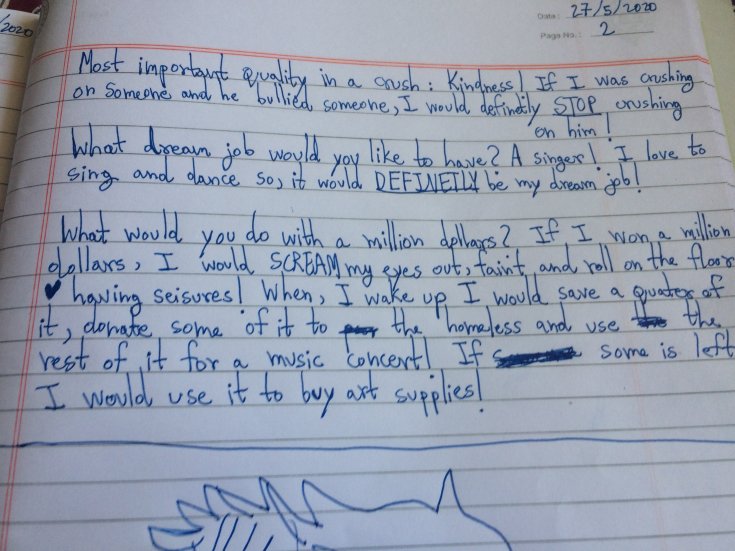 /2020
Date: 27/5/2020
Page No.: 2
Most important quality in a crush: Kindness! If I was crushing
on someone and he bullied someone, I would definetly STOP crushing
on him!
What dream job would you like to have? A singer! I love to
sing and dance so, it would DEFINETLY be my dream job!
What would you do with a million dollars? If I won a million
dollars, I would SCREAM my eyes out, faint and roll on the floor
having seisures! When, I wake up I would save a quater of
it, donate some of it to the homeless and use the
rest of it for a music concert! If some is left
I would use it to buy art supplies!